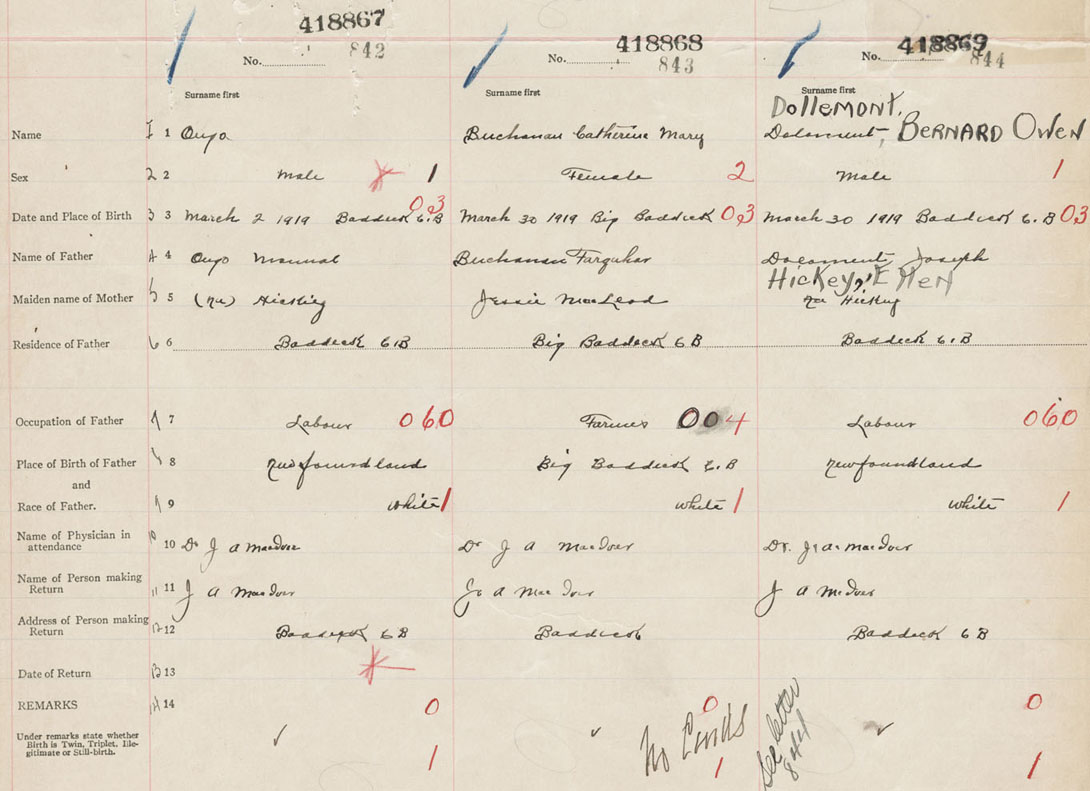 418867 418868 418869
No. 842 No. 843 No. 844
Surname first Surname first Surname first
DollEMONT,
Name 1 Buchanan Catherine Mary Doloment, BERNARD OWEN
Sex 2 2 Male 1 Female 2 Male 1
Date and Place of Birth 3 3 March 2 1919 Baddeck C.B 03 March 30 1919 Big Baddeck 03 March 30 1919 Baddeck C.B 03
Name of Father 4 4 Buchanan Farquhar Joseph
HicKEy, EllEN
Maiden name of Mother 5 5 (nee) Hickey Jessie MacLeod nee Hickey
Residence of Father 6 6 Baddeck C.B Big Baddeck C B Baddeck C.B
Occupation of Father 7 7 Labour 060 Farmer 004 Labour 060
Place of Birth of Father 8 8 Newfoundland Big Baddeck C.B Newfoundland
and
Race of Father. 9 9 White 1 White 1 White 1
Name of Physician in
attendance 10 10 Dr J A Dr J A Dr. J. A.
Name of Person making
Return 11 11 J A J A
Address of Person making
Return 12 12 Baddeck C B Baddeck Baddeck C B
Date of Return 13 13
REMARKS 14 14 0 0 0
Under remarks state whether
Birth is Twin, Triplet. Ille-
gitimate or Still-birth.
1 No 1 See letter 844 1